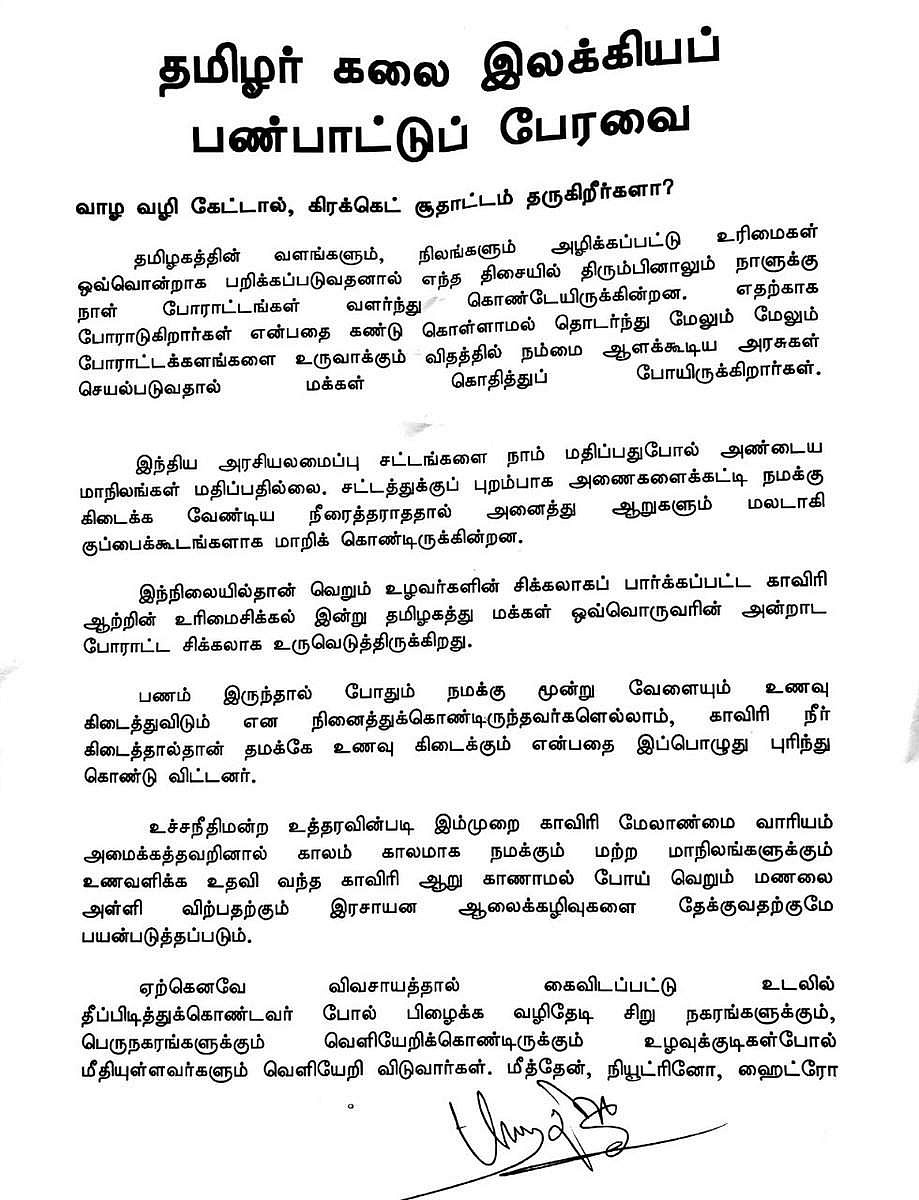 தமிழர் கலை இலக்கியப்
பண்பாட்டுப் பேரவை
வாழ வழி கேட்டால், கிரக்கெட் சூதாட்டம் தருகிறீர்களா?
தமிழகத்தின் வளங்களும், நிலங்களும் அழிக்கப்பட்டு உரிமைகள்
ஒவ்வொன்றாக பறிக்கப்படுவதனால் எந்த திசையில் திரும்பினாலும் நாளுக்கு
நாள் போராட்டங்கள் வளர்ந்து கொண்டேயிருக்கின்றன. எதற்காக
போராடுகிறார்கள் என்பதை கண்டு கொள்ளாமல் தொடர்ந்து மேலும் மேலும்
போராட்டக்களங்களை உருவாக்கும் விதத்தில் நம்மை ஆளக்கூடிய அரசுகள்
செயல்படுவதால் மக்கள் கொதித்துப் போயிருக்கிறார்கள்.
இந்திய அரசியலமைப்பு சட்டங்களை நாம் மதிப்பதுபோல் அண்டைய
மாநிலங்கள் மதிப்பதில்லை. சட்டத்துக்குப் புறம்பாக அணைகளைக்கட்டி நமக்கு
கிடைக்க வேண்டிய நீரைத்தராததால் அனைத்து ஆறுகளும் மலடாகி
குப்பைக்கூடங்களாக மாறிக் கொண்டிருக்கின்றன.
இந்நிலையில்தான் வெறும் உழவர்களின் சிக்கலாகப் பார்க்கப்பட்ட காவிரி
ஆற்றின் உரிமைசிக்கல் இன்று தமிழகத்து மக்கள் ஒவ்வொருவரின் அன்றாட
போராட்ட சிக்கலாக உருவெடுத்திருக்கிறது.
பணம் இருந்தால் போதும் நமக்கு மூன்று வேளையும் உணவு
கிடைத்துவிடும் என நினைத்துக்கொண்டிருந்தவர்களெல்லாம், காவிரி நீர்
கிடைத்தால்தான் தமக்கே உணவு கிடைக்கும் என்பதை இப்பொழுது புரிந்து
கொண்டு விட்டனர்.
உச்சநீதிமன்ற உத்தரவின்படி இம்முறை காவிரி மேலாண்மை வாரியம்
அமைக்கத்தவறினால் காலம் காலமாக நமக்கும் மற்ற மாநிலங்களுக்கும்
உணவளிக்க உதவி வந்த காவிரி ஆறு காணாமல் போய் வெறும் மணலை
அள்ளி விற்பதற்கும் இரசாயன ஆலைக்கழிவுகளை தேக்குவதற்குமே
பயன்படுத்தப்படும்.
ஏற்கெனவே விவசாயத்தால் கைவிடப்பட்டு உடலில்
தீப்பிடித்துக்கொண்டவர் போல் பிழைக்க வழிதேடி சிறு நகரங்களுக்கும்,
பெருநகரங்களுக்கும் வெளியேறிக்கொண்டிருக்கும் உழவுக்குடிகள்போல்
மீதியுள்ளவர்களும் வெளியேறி விடுவார்கள். மீத்தேன், நியூட்ரினோ, ஹைட்ரோ